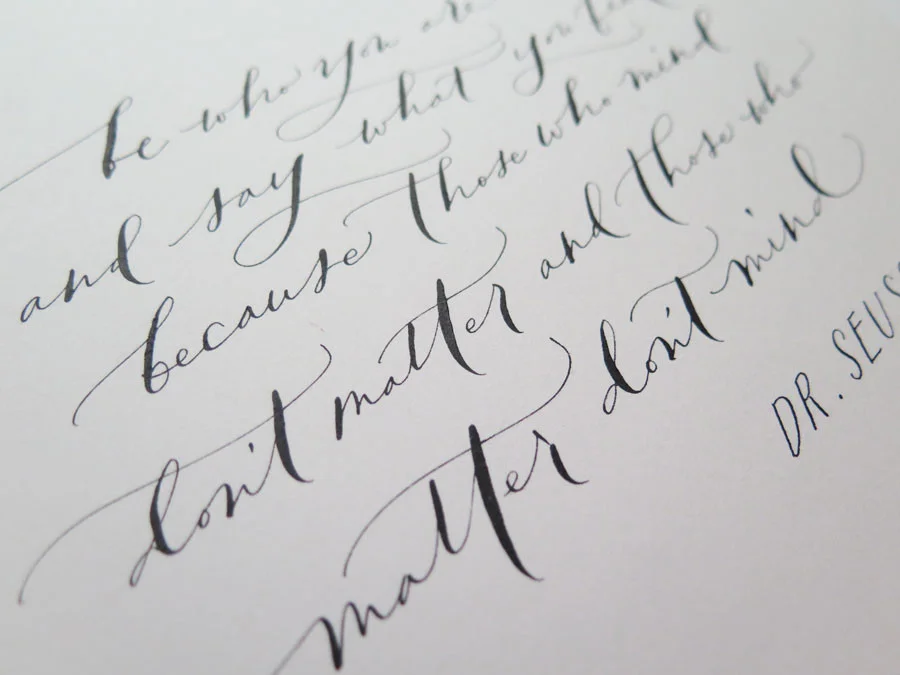 be who you are
and say what you
because those who mind
don't matter and those who
matter don't mind
DR. SEUS